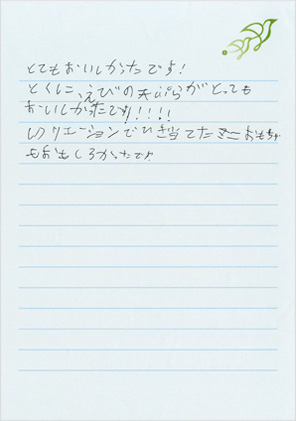 とてもおいしかったです!
とくに、えびの天ぷらがとっても
おいしかったです!!!!
レクリエーションでひき当てた おもちゃ
もおもしろかったです